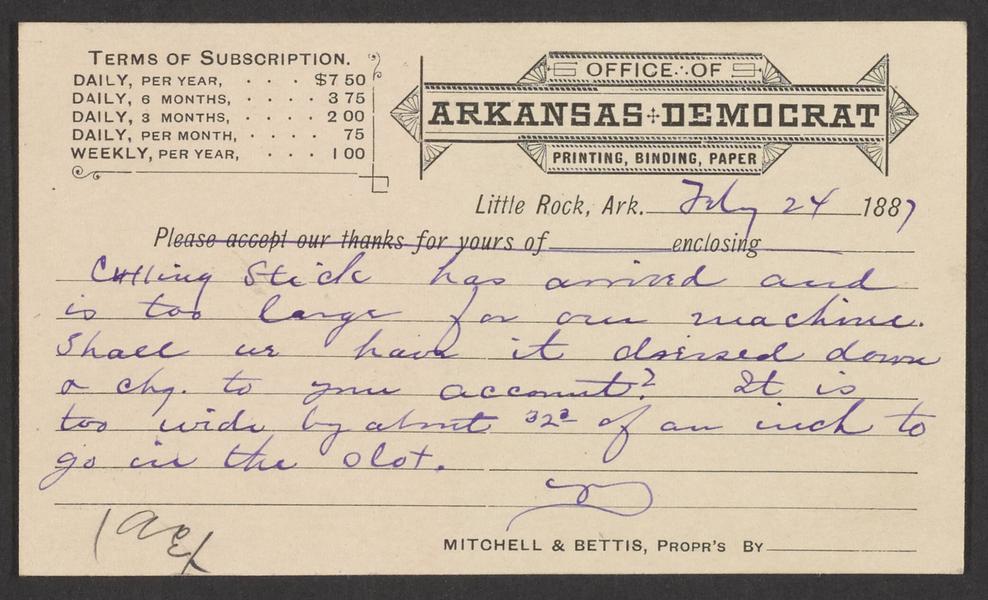 TERMS OF SUBSCRIPTION.
DAILY, PER YEAR, . . . $7 50
DAILY, 6 MONTHS, . . . . 3 75
DAILY, 3 MONTHS, . . . . 2 00
DAILY, PER MONTH, . . . . 75
WEEKLY, PER YEAR, . . . 1 00
OFFICE OF
ARKANSAS DEMOCRAT
PRINTING, BINDING, PAPER
Little Rock, Ark. Feby 24 1887
Please accept our thanks for yours of enclosing
Cutting Stick has arrived and
is too large for our machine.
Shall we have it dressed down
& chg. to your account? It is
too wide by about of an inch to
go in the slot.
MITCHELL & BETTIS, PROPR'S BY